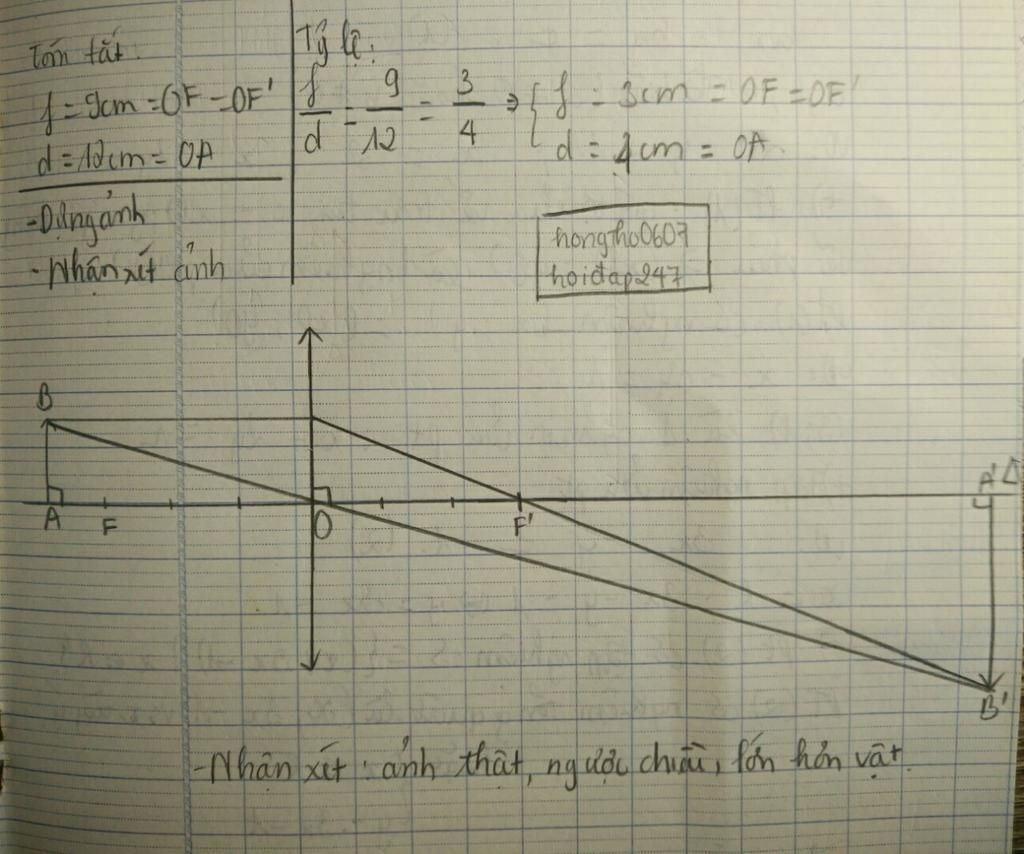 Tóm tắt.
f = 9cm = OF = OF'
d = 12cm = OA
- Dựng ảnh
- Nhận xét ảnh
Tỷ lệ:
f/d = 9/12 = 3/4 ⇒ { f = 3cm = OF = OF'
d = 4cm = OA.
hongtho0607
hoidap247
B
A F O F' A' Δ
B'
- Nhận xét: ảnh thật, ngược chiều, lớn hơn vật.